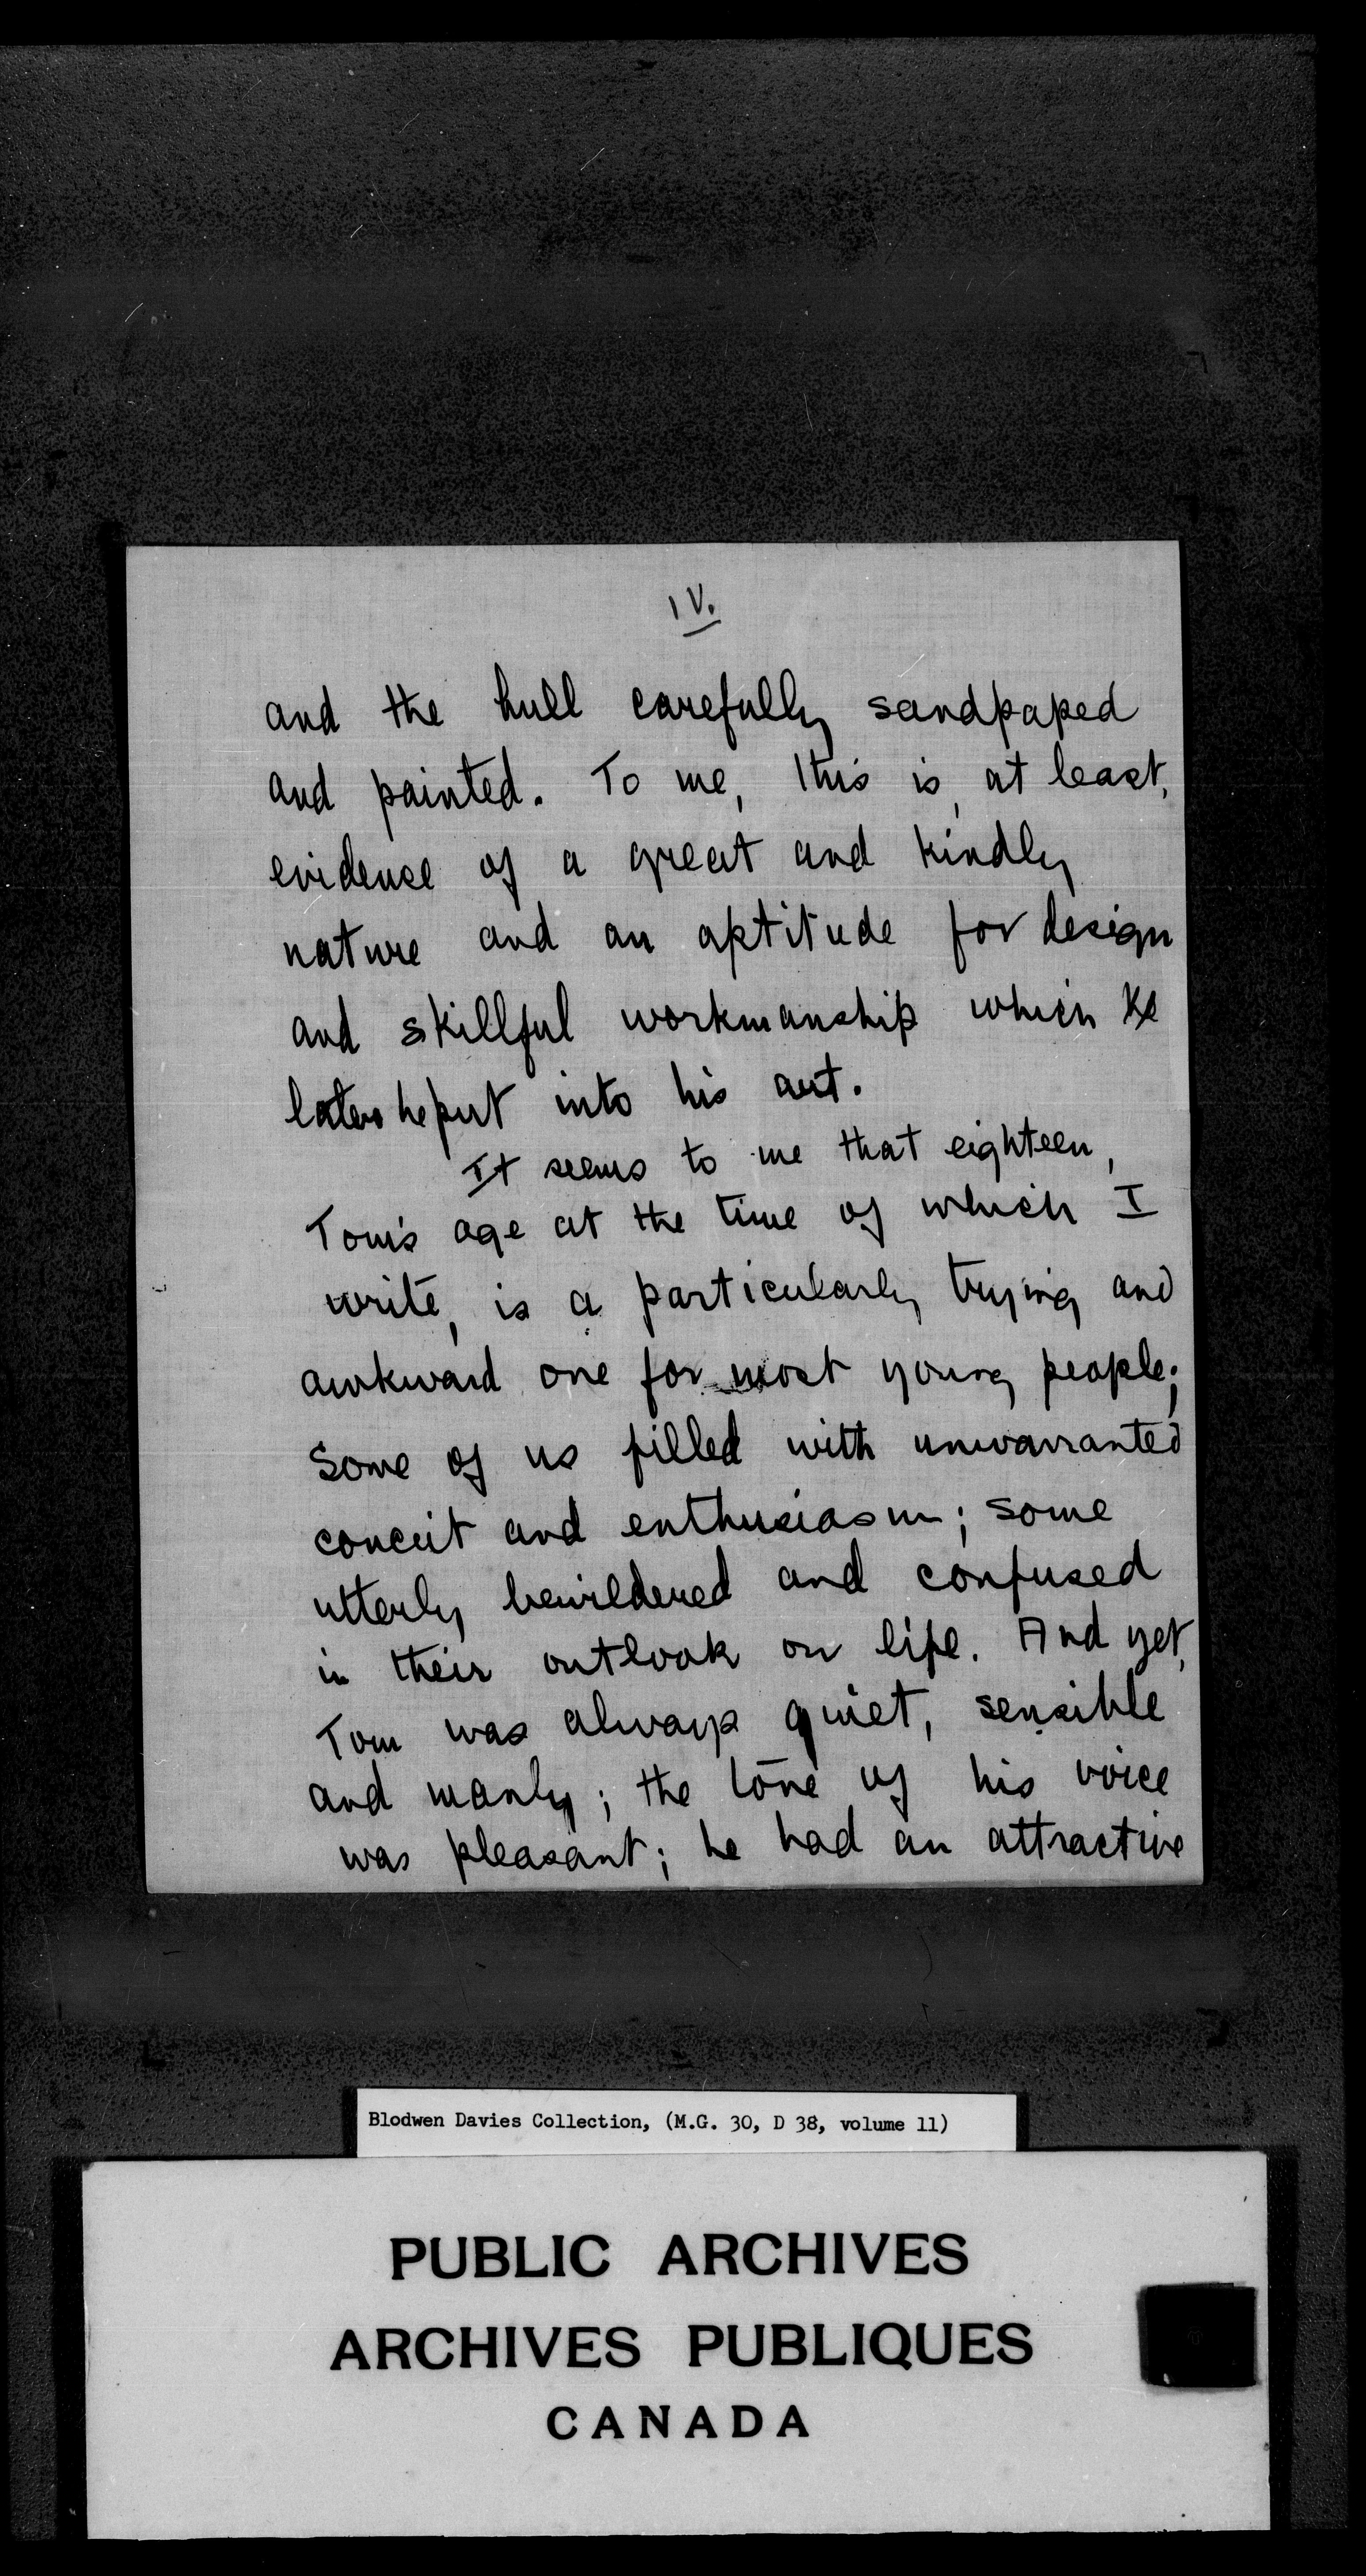 IV.
and the hull carefully sandpaped
and painted. To me, this is, at least,
evidence of a great and kindly
nature and an aptitude for design
and skillful workmanship which he
later he put into his art.
It seems to me that eighteen,
Tom's age at the time of which I
write, is a particularly trying and
awkward one for most young people;
some of us filled with unwarranted
conceit and enthusiasm; some
utterly bewildered and confused
in their outlook on life. And yet,
Tom was always quiet, sensible
and manly; the tone of his voice
was pleasant; he had an attractive
Blodwen Davies Collection, (M.G. 30, D 38, volume 11)
PUBLIC ARCHIVES
ARCHIVES PUBLIQUES
CANADA